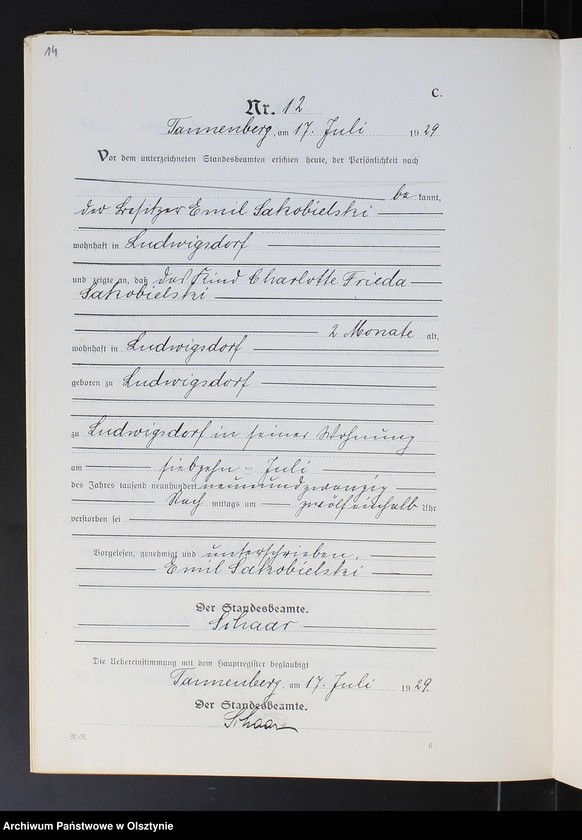 14
C.
Nr. 12
Tannenberg, am 17. Juli 1929
Vor dem unterzeichneten Standesbeamten erschien heute, der Persönlichkeit nach
be kannt,
der Besitzer Emil Sakobielski
wohnhaft in Ludwigsdorf
und zeigte an, daß das Kind Charlotte Frieda
Sakobielski
2 Monate alt,
wohnhaft in Ludwigsdorf
geboren zu Ludwigsdorf
zu Ludwigsdorf in seiner Wohnung
am siebzehn ten Juli
des Jahres tausend neunhundert neunundzwanzig
Nach mittags um zwölfeinhalb Uhr
verstorben sei
Vorgelesen, genehmigt und unterschrieben.
Emil Sakobielski
Der Standesbeamte.
Schaar
Die Uebereinstimmung mit dem Hauptregister beglaubigt
Tannenberg, am 17. Juli 1929.
Der Standesbeamte.
Schaar
6
Archiwum Państwowe w Olsztynie